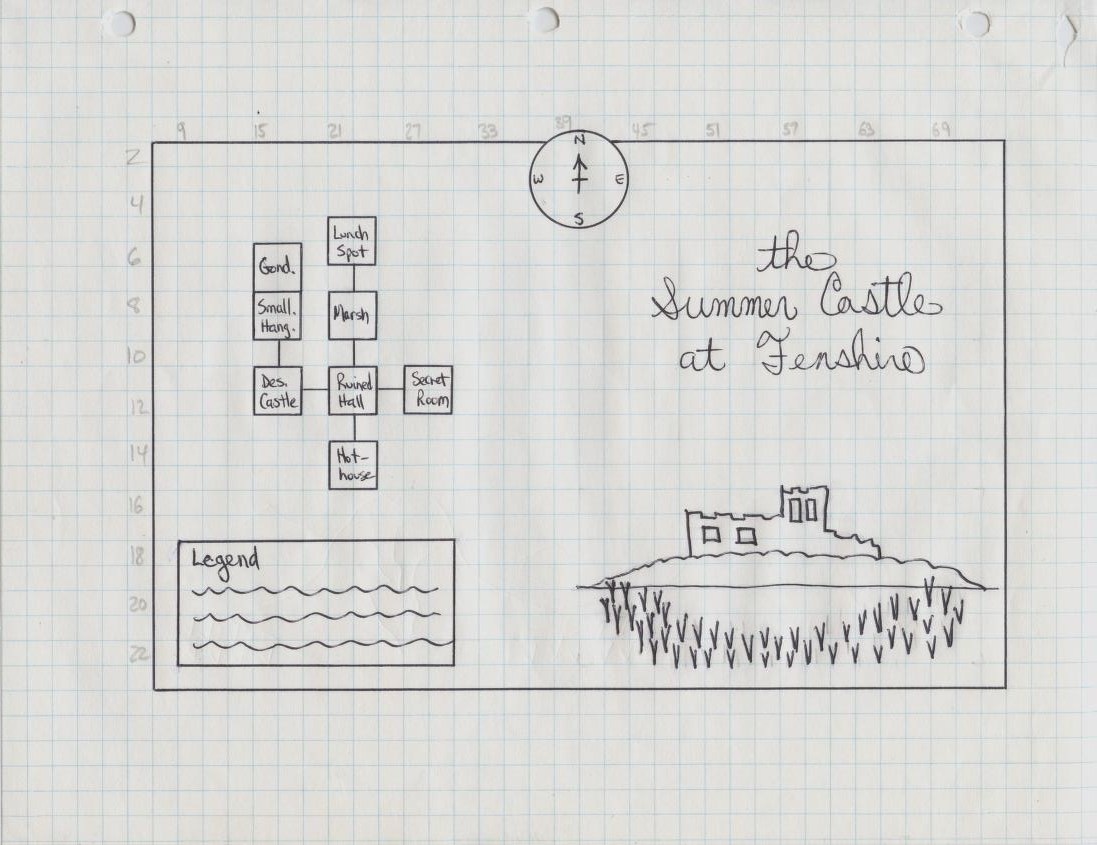 9 15 21 27 33 39 45 51 57 63 69
2
4
6
8
10
12
14
16
18
20
22
N
W E
S
Lunch
Spot
Gond.
Small.
Hang.
Marsh
Des.
Castle
Ruined
Hall
Secret
Room
Hot-
house
the
Summer Castle
at Fenshire
Legend